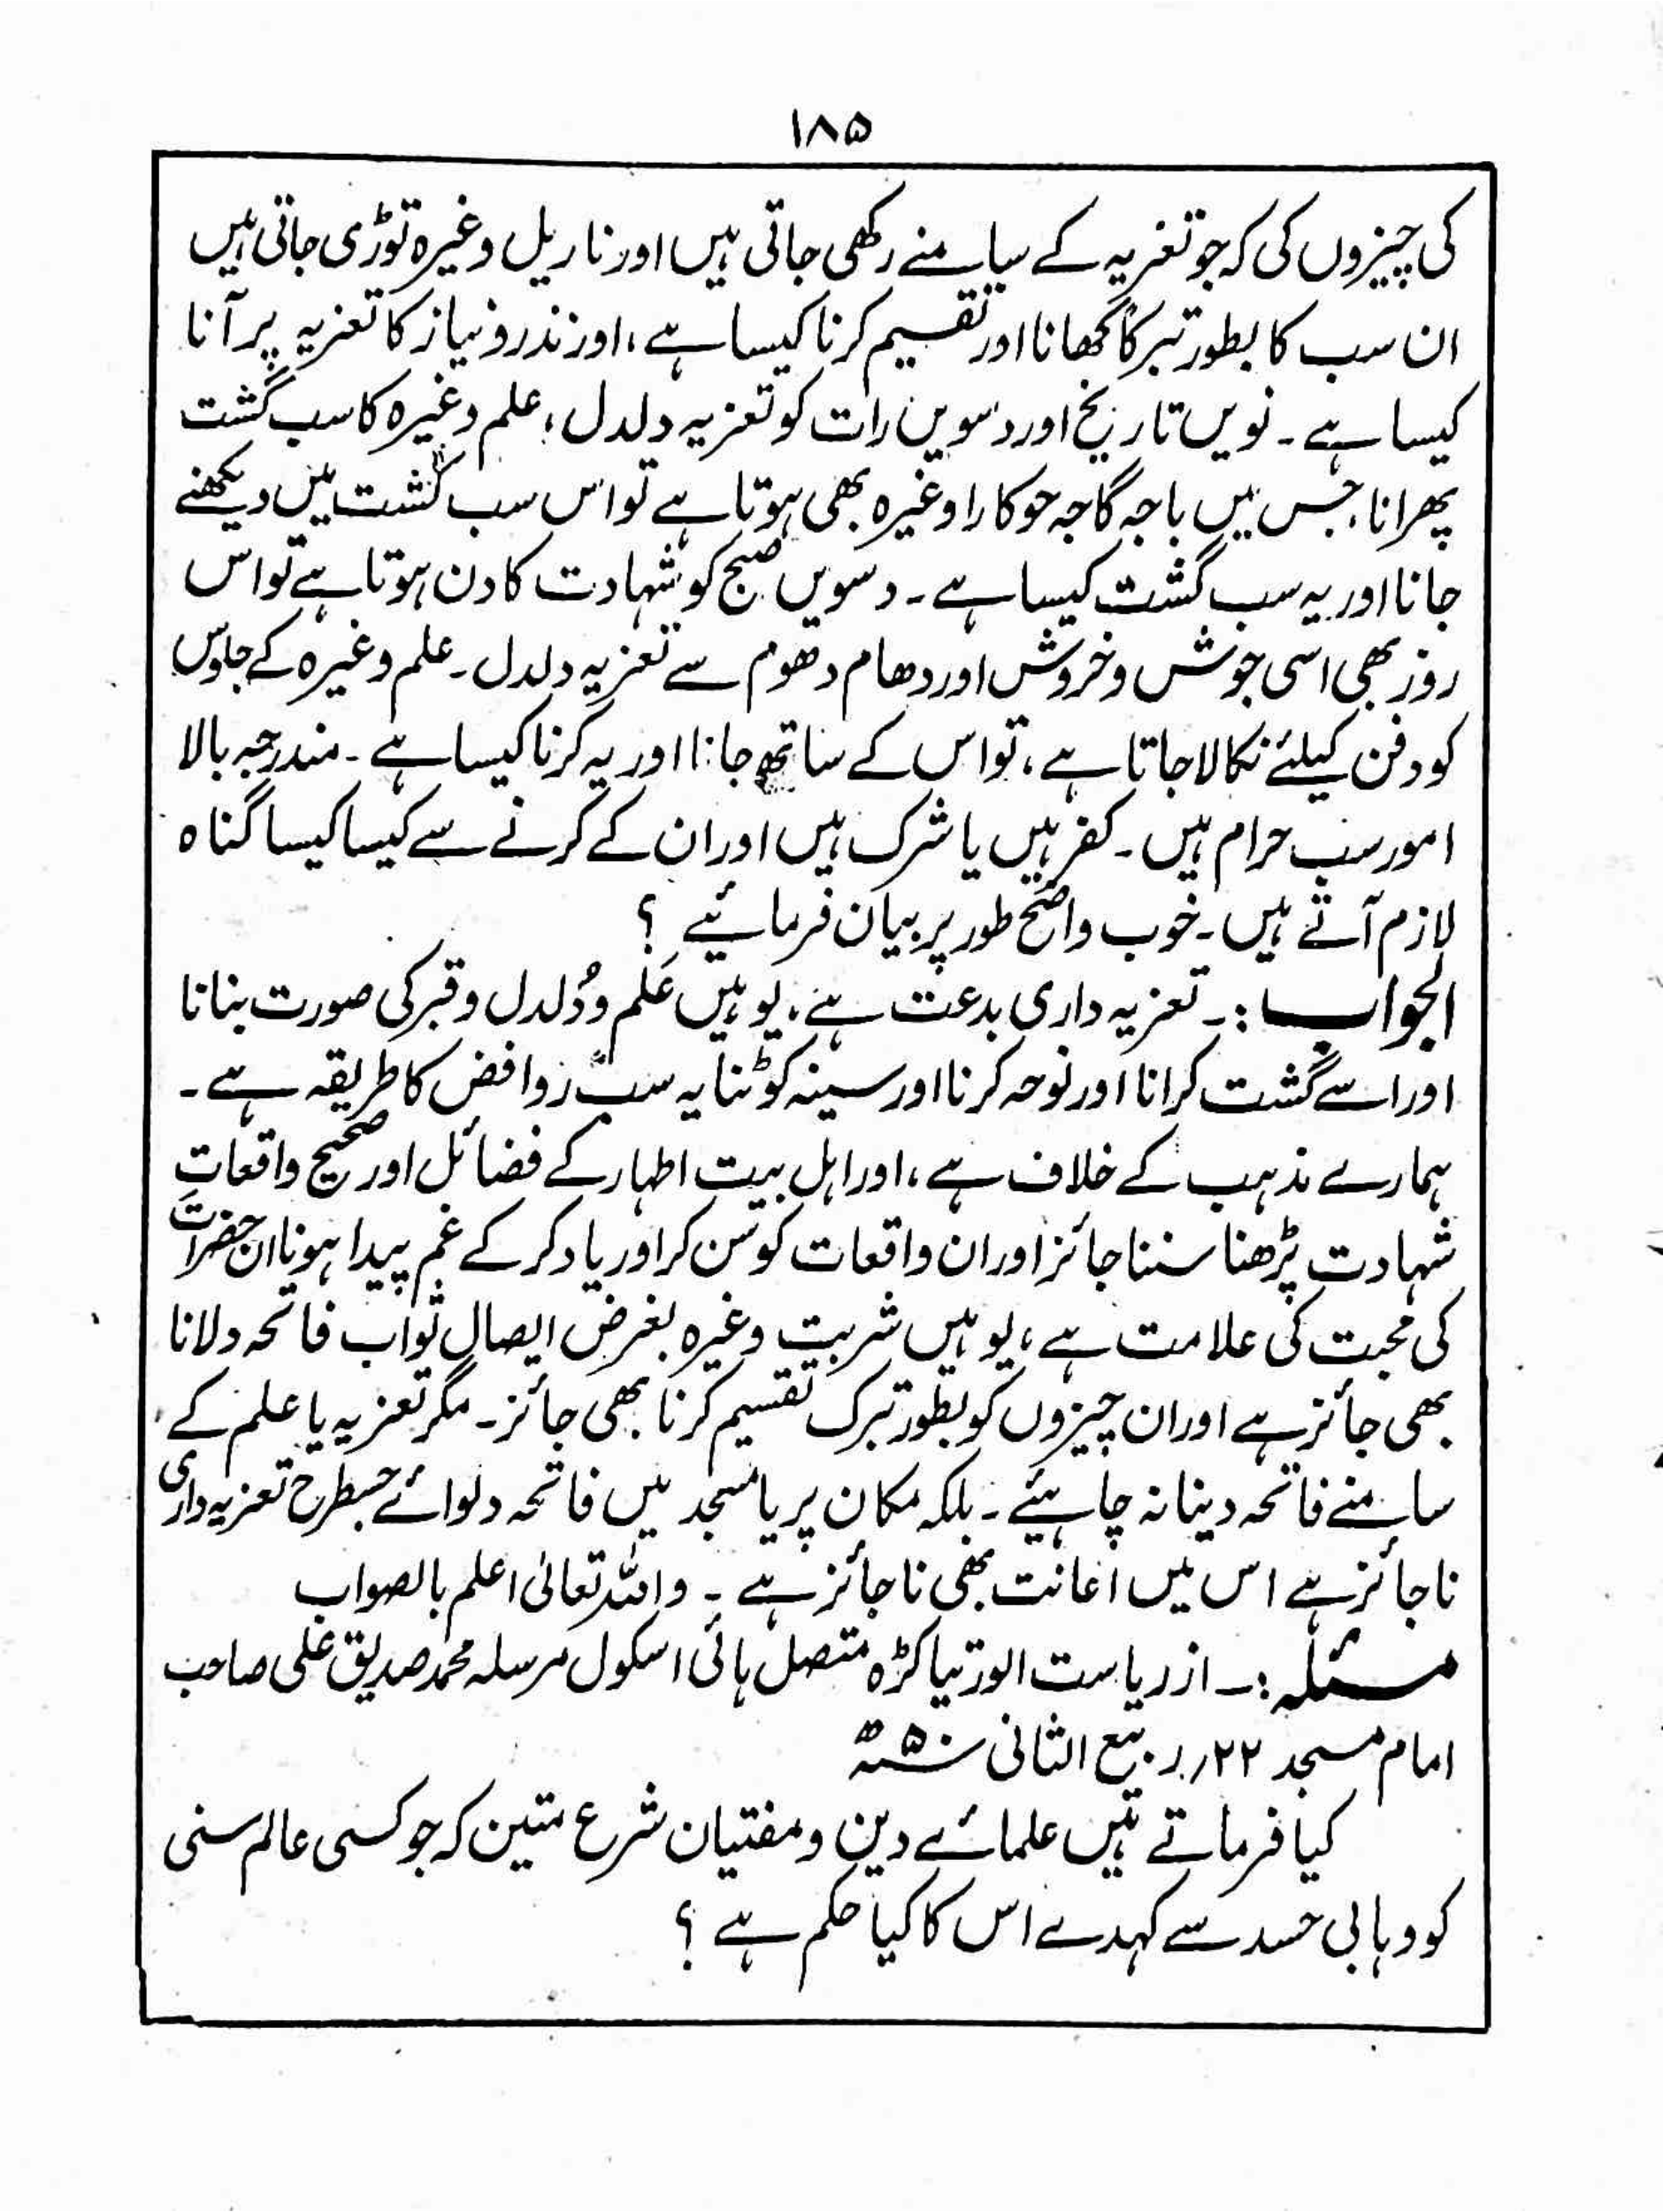 ۱۸۵
کی چیزوں کی کہ جو تعزیہ کے سامنے رکھی جاتی ہیں اور ناریل وغیرہ توڑی جاتی ہیں
ان سب کا بطور تبرکاً کھانا اور تقسیم کرنا کیسا ہے، اور نذر و نیاز کا تعزیہ پر آنا
کیسا ہے۔ نویں تاریخ اور دسویں رات کو تعزیہ دلدل، علم وغیرہ کا سب گشت
پھرانا، جس میں باجہ گاجہ حوکارا وغیرہ بھی ہوتا ہے تو اس سب گشت میں دیکھنے
جانا اور یہ سب گشت کیسا ہے۔ دسویں صبح کو شہادت کا دن ہوتا ہے تو اس
روز بھی اسی جوش و خروش اور دھام دھوم سے تعزیہ دلدل۔ علم وغیرہ کے جلوس
کو دفن کیلئے نکالا جاتا ہے، تو اس کے ساتھ جانا اور یہ کرنا کیسا ہے۔ مندرجہ بالا
امور سب حرام ہیں۔ کفر ہیں یا شرک ہیں اور ان کے کرنے سے کیسا کیسا گناہ
لازم آتے ہیں۔ خوب واضح طور پر بیان فرمائیے ؟
الجواب :۔ تعزیہ داری بدعت ہے، یوہیں عَلم و دُلدل و قبر کی صورت بنانا
اور اسے گشت کرانا اور نوحہ کرنا اور سینہ کوٹنا یہ سب روافض کا طریقہ ہے۔
ہمارے مذہب کے خلاف ہے، اور اہل بیت اطہار کے فضائل اور صحیح واقعاتِ
شہادت پڑھنا سننا جائز اور ان واقعات کو سن کر اور یاد کر کے غم پیدا ہونا ان حضرات
کی محبت کی علامت ہے، یوہیں شربت وغیرہ بغرض ایصال ثواب فاتحہ دلانا
بھی جائز ہے اور ان چیزوں کو بطور تبرک تقسیم کرنا بھی جائز۔ مگر تعزیہ یا علم کے
سامنے فاتحہ دینا نہ چاہیئے۔ بلکہ مکان پر یا مسجد میں فاتحہ دلوائے جسطرح تعزیہ داری
ناجائز ہے اس میں اعانت بھی ناجائز ہے ۔ واللہ تعالیٰ اعلم بالصواب
مسئلہ :۔ از ریاست الور تیا کڑہ متصل ہائی اسکول مرسلہ محمد صدیق علی صاحب
امام مسجد ۲۲؍ ربیع الثانی ۵۰ھ
کیا فرماتے ہیں علمائے دین و مفتیان شرع متین کہ جو کسی عالم سنی
کو وہابی حسد سے کہدے اس کا کیا حکم ہے ؟